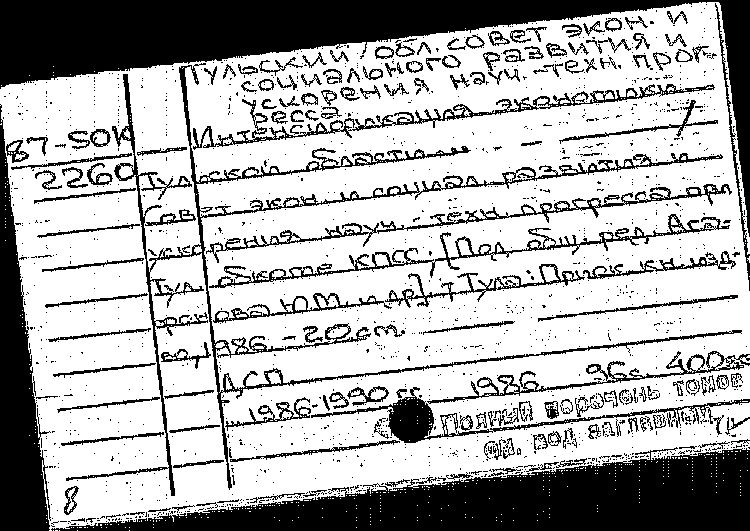 Тульский обл. совет экон. и
социального развития и
ускорения науч.-техн. прог-
ресса.
87-50К Интенсификация экономики
2260 Тульской области ... /
Совет экон. и социал. развития и
ускорения науч.-техн. прогресса при
Тул. обкоме КПСС; [Под общ. ред.
Ю.М. и др]. - Тула: Приок. кн. изд-
во, 1986. - 20 см.
ДСП.
1986-1990 гг. 1986. 96 с. 400
Полный перечень томов
см. под заглавием
8